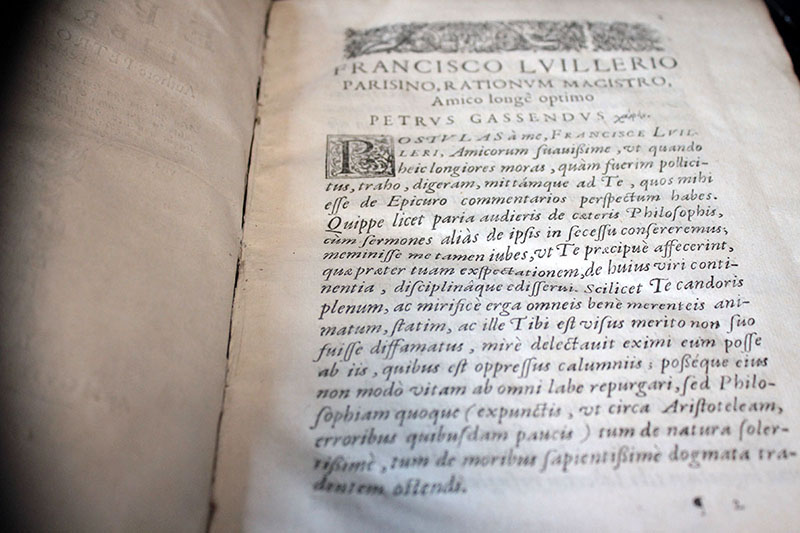 FRANCISCO LVILLERIO
PARISINO, RATIONVM MAGISTRO,
Amico longè optimo
PETRVS GASSENDVS χαίρειν.
POSTVLAS à me, FRANCISCE LVIL-
LERI, Amicorum ſuauiſſime, vt quando
heic longiores moras, quàm fuerim pollici-
tus, traho, digeram, mittámque ad Te, quos mihi
eſſe de Epicuro commentarios perſpectum habes.
Quippe licet paria audieris de cæteris Philoſophis,
cùm ſermones aliàs de ipſis in ſeceſſu conſereremus;
meminiſſe me tamen iubes, vt Te præcipuè affecerint,
quæ præter tuam exſpectationem, de huius viri conti-
nentia, diſciplináque ediſſerui. Scilicet Te candoris
plenum, ac mirificè erga omneis benè merenteis ani-
matum, ſtatim, ac ille Tibi eſt viſus merito non ſuo
fuiſſe diffamatus, mirè delectauit eximi eum poſſe
ab iis, quibus eſt oppreſſus calumniis; poßéque eius
non modò vitam ab omni labe repurgari, ſed Philo-
ſophiam quoque (expunctis, vt circa Ariſtoteleam,
erroribus quibuſdam paucis) tum de natura ſoler-
tißimè, tum de moribus ſapientißimè dogmata tra-
dentem oſtendi.